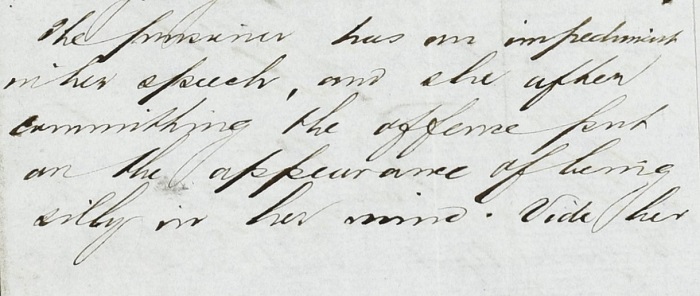 The prisoner has an impediment
in her speech, and she after
committing the offence put
on the appearance of being
silly in her mind. Vide her